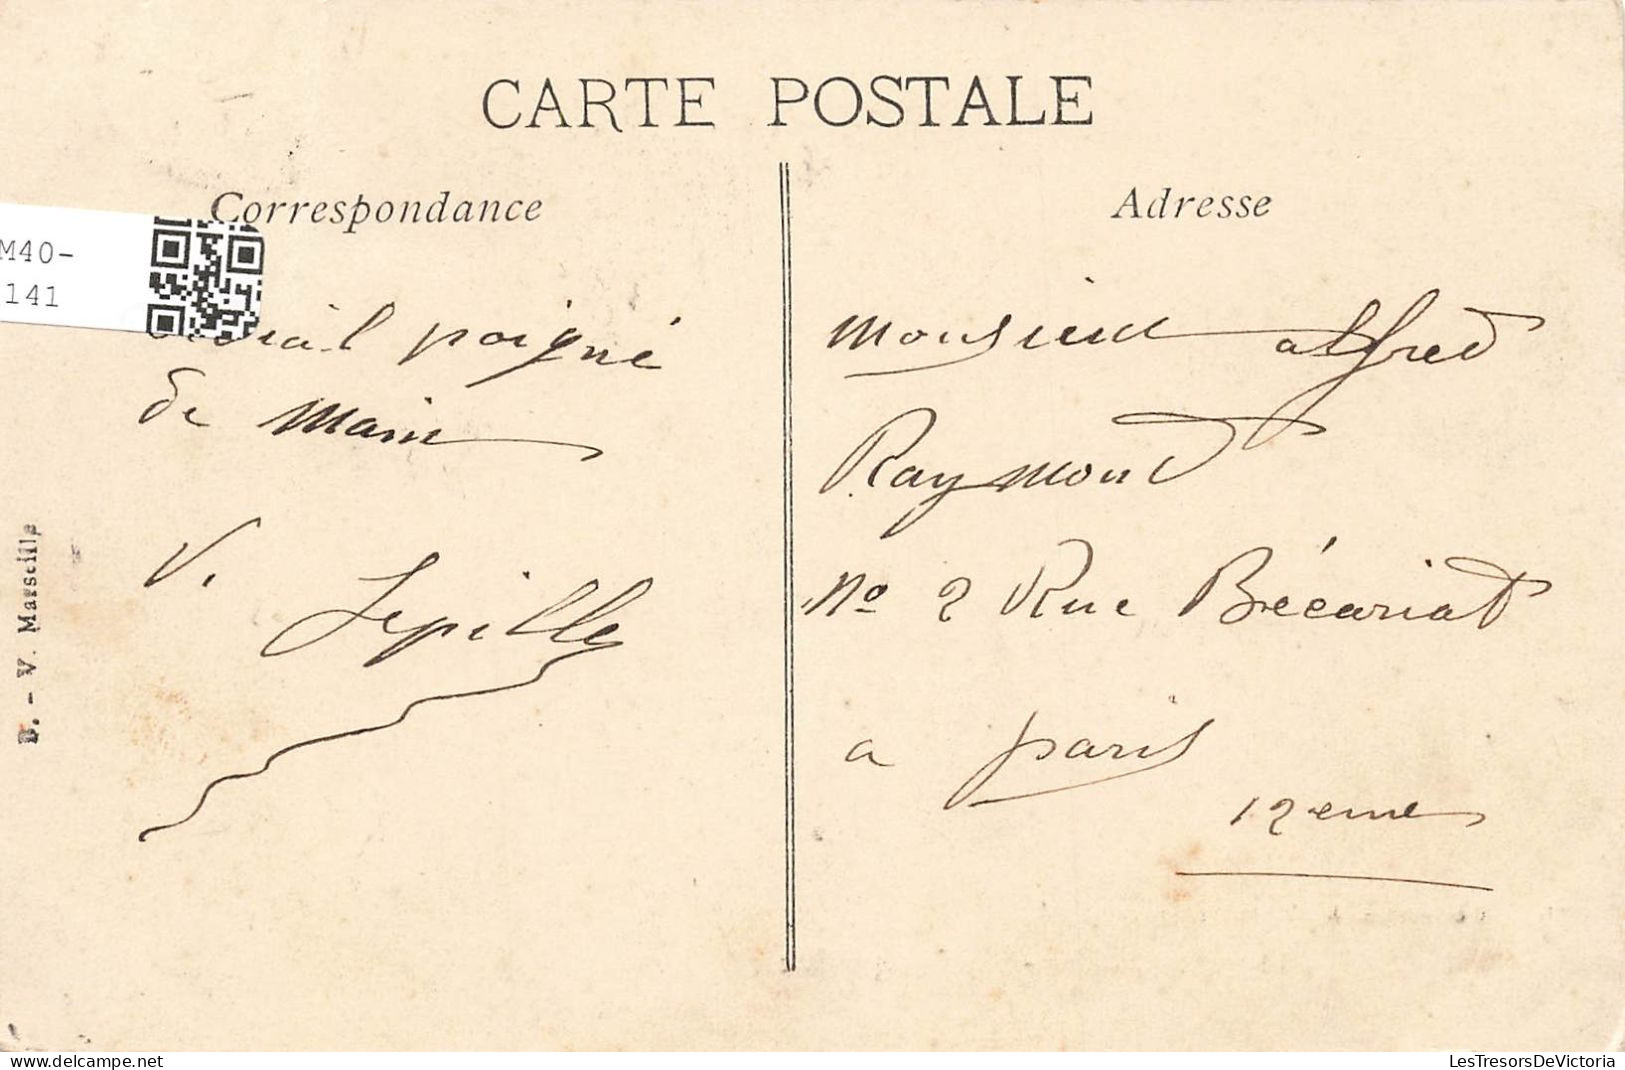 CARTE POSTALE
Correspondance
Adresse
M40-
141
poigné
de Main
V.
Monsieur alfred
Raymond
No 2 Rue Bécariat
a paris
12eme
B. - V. Marseille
delcampe.net
LesTresorsDeVictoria